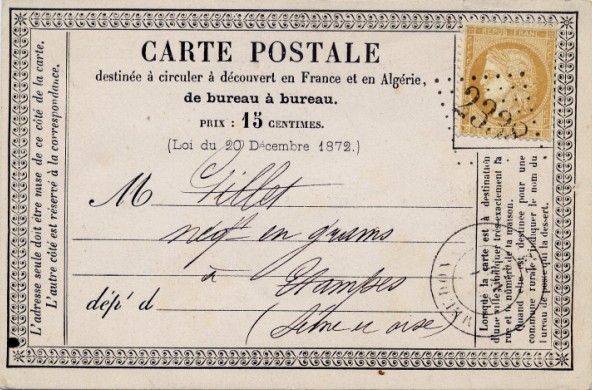 CARTE POSTALE
destinée à circuler à découvert en France et en Algérie,
de bureau à bureau.
PRIX : 15 CENTIMES.
(Loi du 20 Décembre 1872.)
M Gillet
négt en grains
à Etampes
dép' d
(Seine et oise)
L'adresse seule doit être mise de ce côté de la carte.
L'autre côté est réservé à la correspondance.
Lorsque la carte est à destination
d'une ville, indiquer très-exactement la
rue et le numéro de la maison.
Quand elle est destinée pour une
commune rurale, indiquer le nom du
bureau de poste qui la dessert.
REPUB FRANC